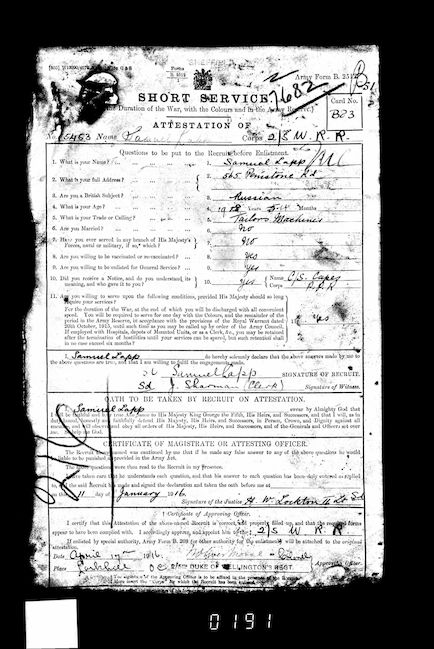 Forms
B. 2512
Army Form B. 2512
SHORT SERVICE.
7682
Card No.
(For the Duration of the War, with the Colours and in the Army Reserve.)
B23
ATTESTATION OF
No. 5453 Name Corps 2/8 W. R. R.
Questions to be put to the Recruit before Enlistment.
1. What is your Name? 1. Samuel Lapp
2. What is your full Address? 2. 565 Penistone Rd
3. Are you a British Subject? 3. Russian
4. What is your Age? 4. Years Months
5. What is your Trade or Calling? 5. Tailors Machinist
6. Are you Married? 6. No
7. Have you ever served in any branch of His Majesty's
Forces, naval or military, if so, which? 7. No
8. Are you willing to be vaccinated or re-vaccinated? 8. Yes
9. Are you willing to be enlisted for General Service? 9. Yes
10. Did you receive a Notice, and do you understand its
meaning, and who gave it to you? 10. Yes Name
Corps
11. Are you willing to serve upon the following conditions, provided His Majesty should so long
require your services?
For the duration of the War, at the end of which you will be discharged with all convenient
speed. You will be required to serve for one day with the Colours, and the remainder of the
period in the Army Reserve, in accordance with the provisions of the Royal Warrant dated
20th October, 1915, until such time as you may be called up by order of the Army Council.
If employed with Hospitals, depots of Mounted Units, or as a Clerk, &c., you may be retained
after the termination of hostilities until your services can be spared, but such retention shall
in no case exceed six months?
11. Yes
I, Samuel Lapp do hereby solemnly declare that the above answers made by me to
the above questions are true, and that I am willing to fulfil the engagements made.
Samuel Lapp SIGNATURE OF RECRUIT.
Sd J. Sharman (Clerk) Signature of Witness.
OATH TO BE TAKEN BY RECRUIT ON ATTESTATION.
I, Samuel Lapp swear by Almighty God that
I will be faithful and bear true Allegiance to His Majesty King George the Fifth, His Heirs, and Successors, and that I will, as in
duty bound, honestly and faithfully defend His Majesty, His Heirs, and Successors, in Person, Crown, and Dignity against all
enemies, and will observe and obey all orders of His Majesty, His Heirs and Successors, and of the Generals and Officers set over
me.
CERTIFICATE OF MAGISTRATE OR ATTESTING OFFICER.
The Recruit above named was cautioned by me that if he made any false answer to any of the above questions he would
be liable to be punished as provided in the Army Act.
The above questions were then read to the Recruit in my presence.
I have taken care that he understands each question, and that his answer to each question has been duly entered as replied
to, and the said Recruit has made and signed the declaration and taken the oath before me at
on this 11 day of January 1916.
Signature of the Justice H. W. Lockton
† Certificate of Approving Officer.
I certify that this Attestation of the above-named Recruit is correct, and properly filled up, and that the required forms
appear to have been complied with. I accordingly approve, and appoint him to the 2/8 W. R. R.
If enlisted by special authority, Army B. 203 (or other authority for the enlistment) will be attached to the original
attestation.
Date April 1916.
Place
Approving Officer.
DUKE OF WELLINGTON'S REGT.
† The signature of the Approving Officer is to be affixed in the presence of the Recruit.
0191